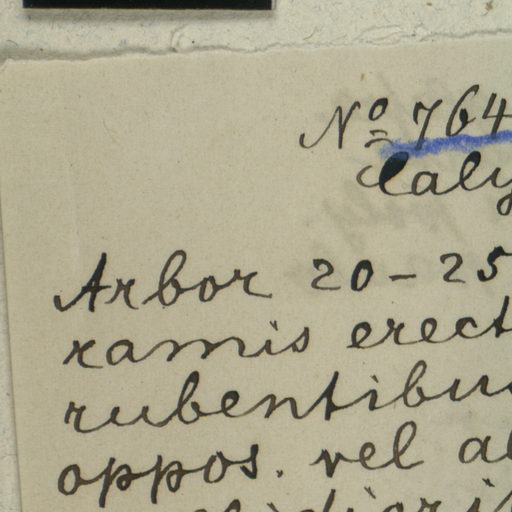 Nº 764
Caly
Arbor 20-25
ramis erect
rubentibus
oppos. vel al